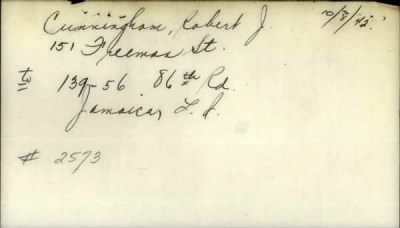 Cunningham, Robert J. 10/8/45.
151 Freeman St.
to 139-56 86th Rd.
Jamaica, L. I.
# 2573